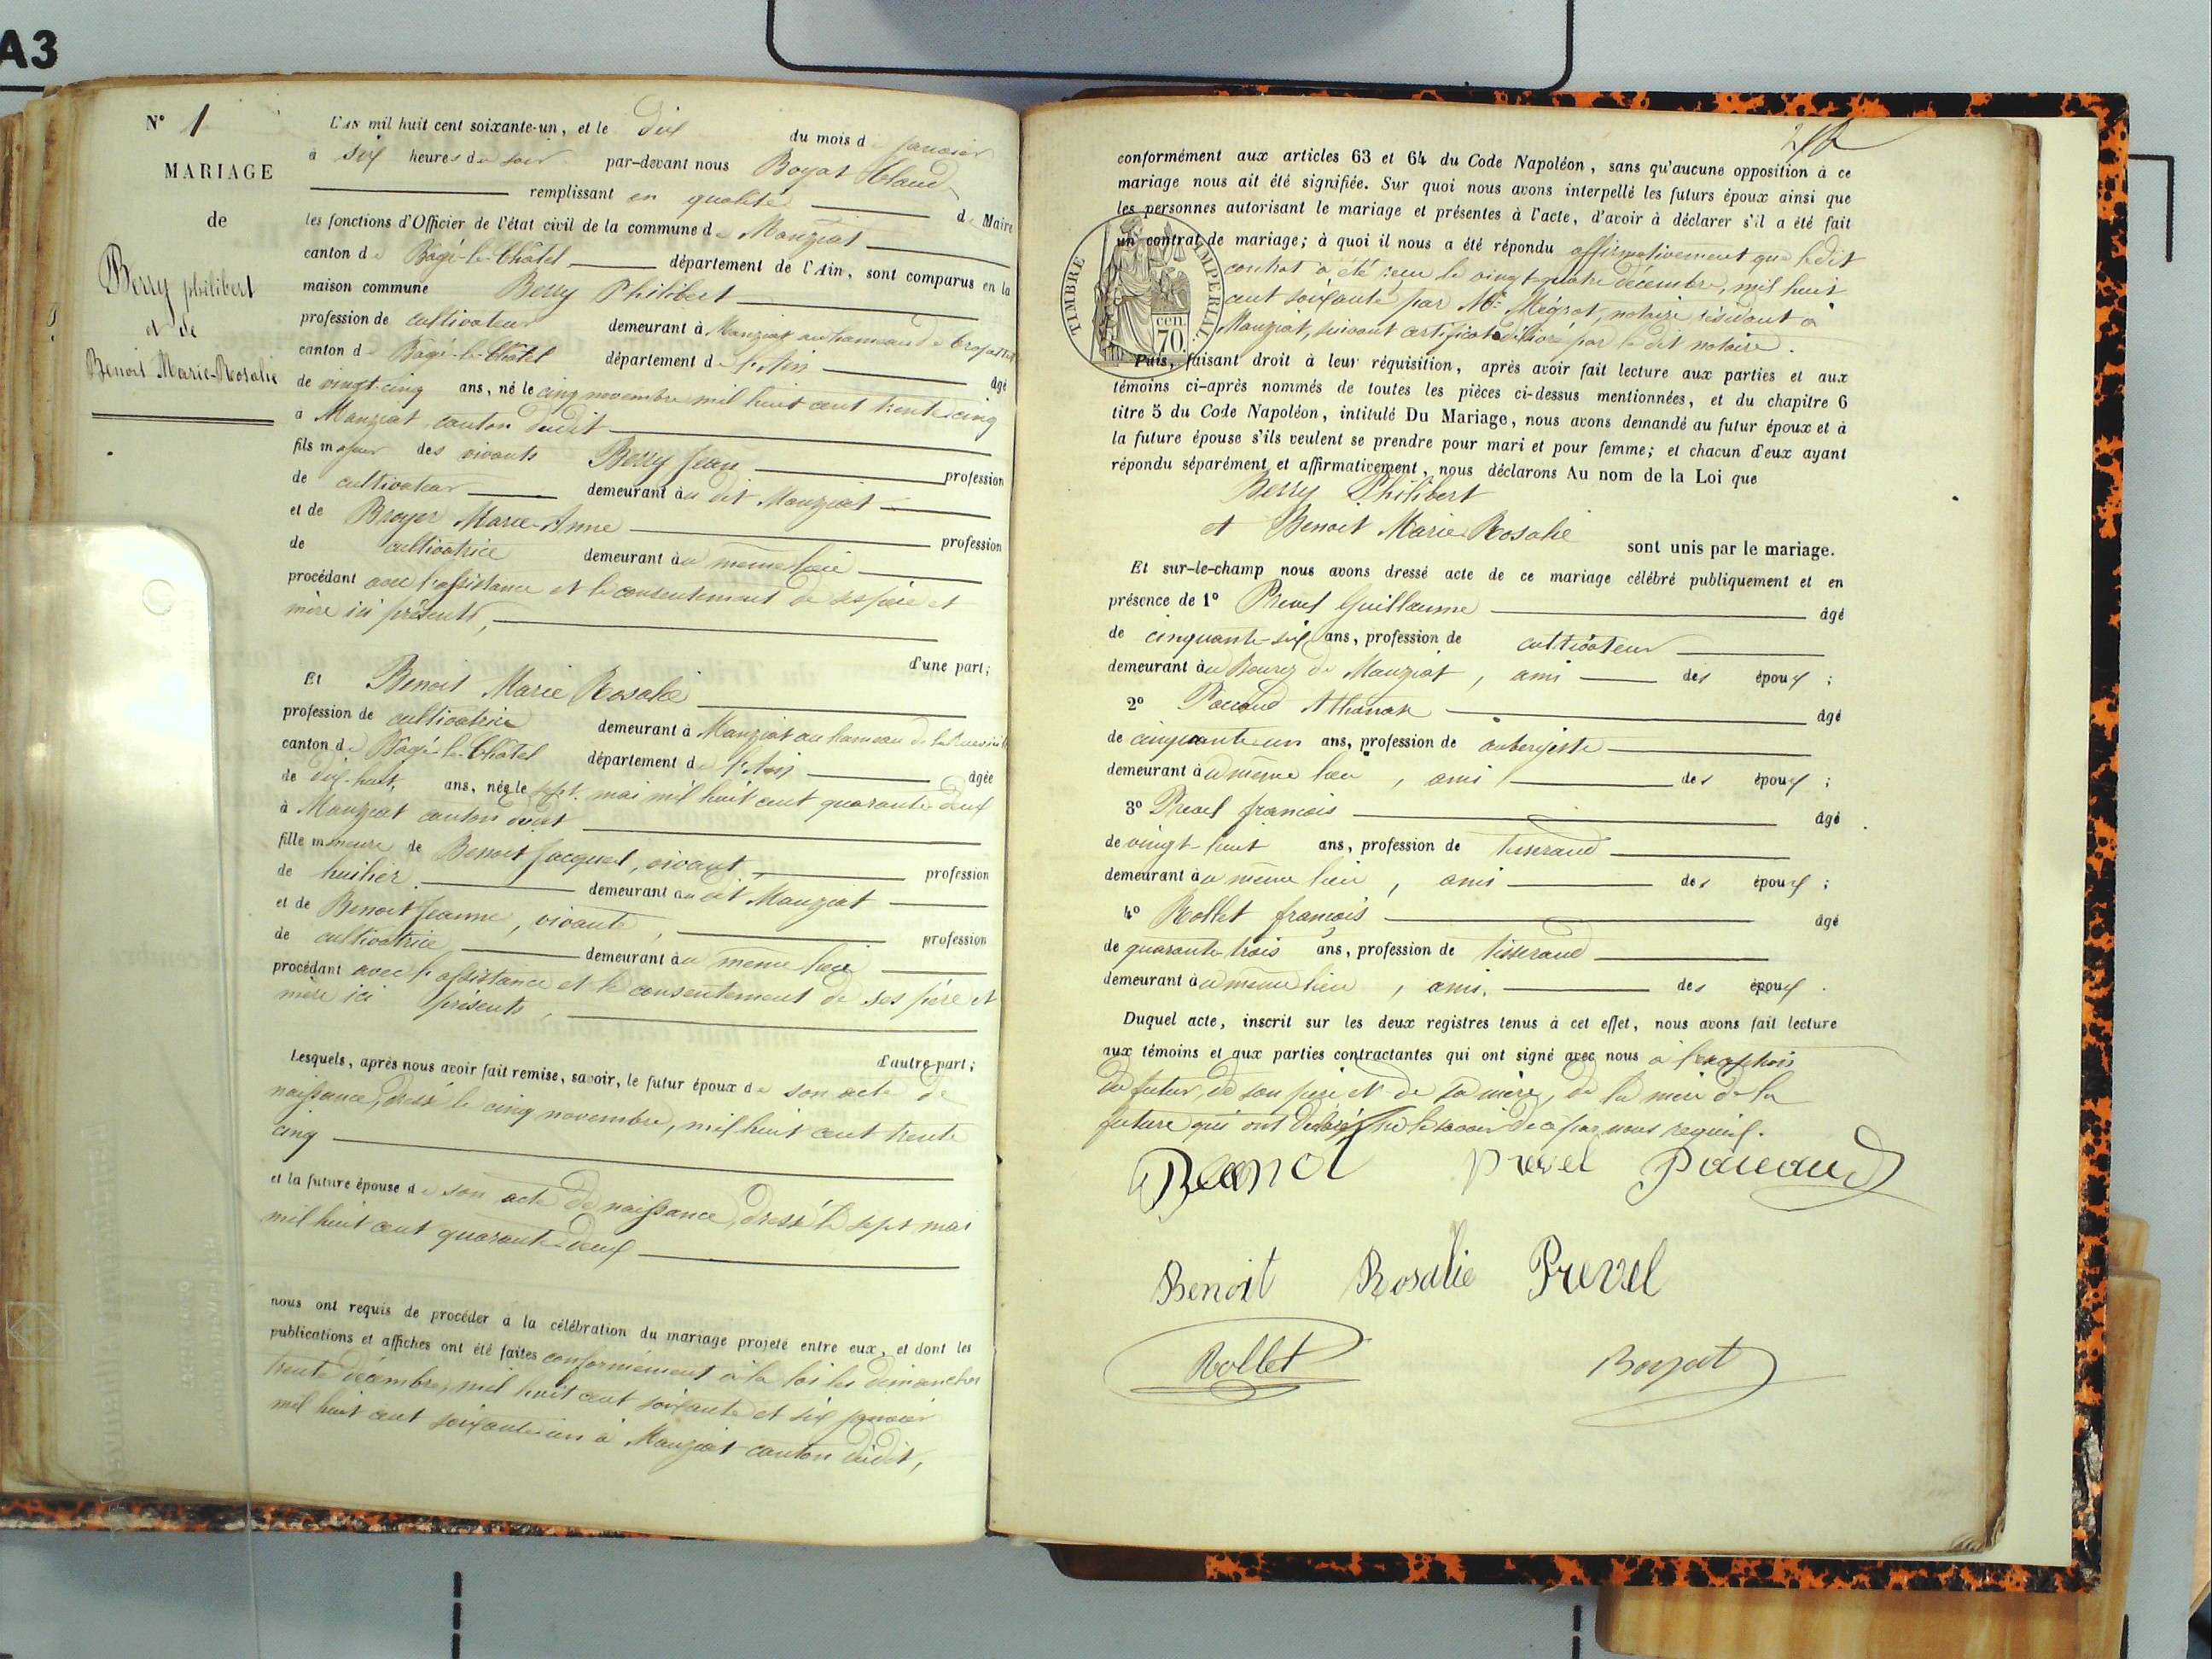 A3
N° 1
MARIAGE
de
Berry philibert
et de
Benoit Marie-Rosalie
L'AN mil huit cent soixante-un, et le dix du mois de janvier
à six heures du soir par-devant nous Boyat Claude
remplissant en qualité de Maire
les fonctions d'Officier de l'état civil de la commune de Manziat
canton de Bâgé-le-Châtel département de l'Ain, sont comparus en la
maison commune Berry Philibert
profession de cultivateur demeurant à Manziat au hameau de
canton de Bâgé-le-Châtel département de l'Ain âgé
de vingt-cinq ans, né le cinq novembre mil huit cent trente cinq
à Manziat canton dudit
fils majeur des vivants Berry Jean profession
de cultivateur demeurant au dit Manziat
et de Broyer Marie-Anne profession
de cultivatrice demeurant au même lieu
procédant avec l'assistance et le consentement de ses père et
mère ici présents,
d'une part;
Et Benoit Marie Rosalie
profession de cultivatrice demeurant à Manziat au hameau de
canton de Bâgé-le-Châtel département de l'Ain âgée
de dix-huit ans, née le sept mai mil huit cent quarante deux
à Manziat canton dudit
fille mineure de Benoit Jacques, vivant, profession
de huilier demeurant au dit Manziat
et de Benoit Jeanne, vivante, profession
de cultivatrice demeurant au même lieu
procédant avec l'assistance et le consentement de ses père et
mère ici présents,
d'autre part;
Lesquels, après nous avoir fait remise, savoir, le futur époux de son acte de
naissance, dressé le cinq novembre, mil huit cent trente
cinq
et la future épouse de son acte de naissance, dressé le sept mai
mil huit cent quarante-deux
nous ont requis de procéder à la célébration du mariage projeté entre eux, et dont les
publications et affiches ont été faites conformément à la loi les dimanches
trente décembre, mil huit cent soixante et six janvier
mil huit cent soixante-un à Manziat canton dudit,
conformément aux articles 63 et 64 du Code Napoléon, sans qu'aucune opposition à ce
mariage nous ait été signifiée. Sur quoi nous avons interpellé les futurs époux ainsi que
les personnes autorisant le mariage et présentes à l'acte, d'avoir à déclarer s'il a été fait
un contrat de mariage; à quoi il nous a été répondu affirmativement que ledit
contrat a été reçu le vingt-quatre décembre, mil huit
cent soixante par Me Mégrat, notaire résidant à
Manziat, suivant certificat délivré par le dit notaire.
TIMBRE IMPERIAL.
cen. 70.
Puis, faisant droit à leur réquisition, après avoir fait lecture aux parties et aux
témoins ci-après nommés de toutes les pièces ci-dessus mentionnées, et du chapitre 6
titre 5 du Code Napoléon, intitulé Du Mariage, nous avons demandé au futur époux et à
la future épouse s'ils veulent se prendre pour mari et pour femme; et chacun d'eux ayant
répondu séparément et affirmativement, nous déclarons Au nom de la Loi que
Berry Philibert
et Benoit Marie Rosalie sont unis par le mariage.
Et sur-le-champ nous avons dressé acte de ce mariage célébré publiquement et en
présence de 1° Prevel Guillaume âgé
de cinquante-six ans, profession de cultivateur
demeurant au Bourg de Manziat, ami des époux;
2° Pacaud Athanase âgé
de cinquante-un ans, profession de aubergiste
demeurant au même lieu, ami des époux;
3° Prevel francois âgé
de vingt-huit ans, profession de tisserand
demeurant au même lieu, ami des époux;
4° Rollet françois âgé
de quarante-trois ans, profession de tisserand
demeurant au même lieu, ami. des époux.
Duquel acte, inscrit sur les deux registres tenus à cet effet, nous avons fait lecture
aux témoins et aux parties contractantes qui ont signé avec nous à l'exception
du futur, de son père et de sa mère, de la mère de la
future qui ont déclaré ne le savoir de ce par nous requis.
Benoit prevel Pacaud
Benoit Rosalie Prevel
Rollet Boyat